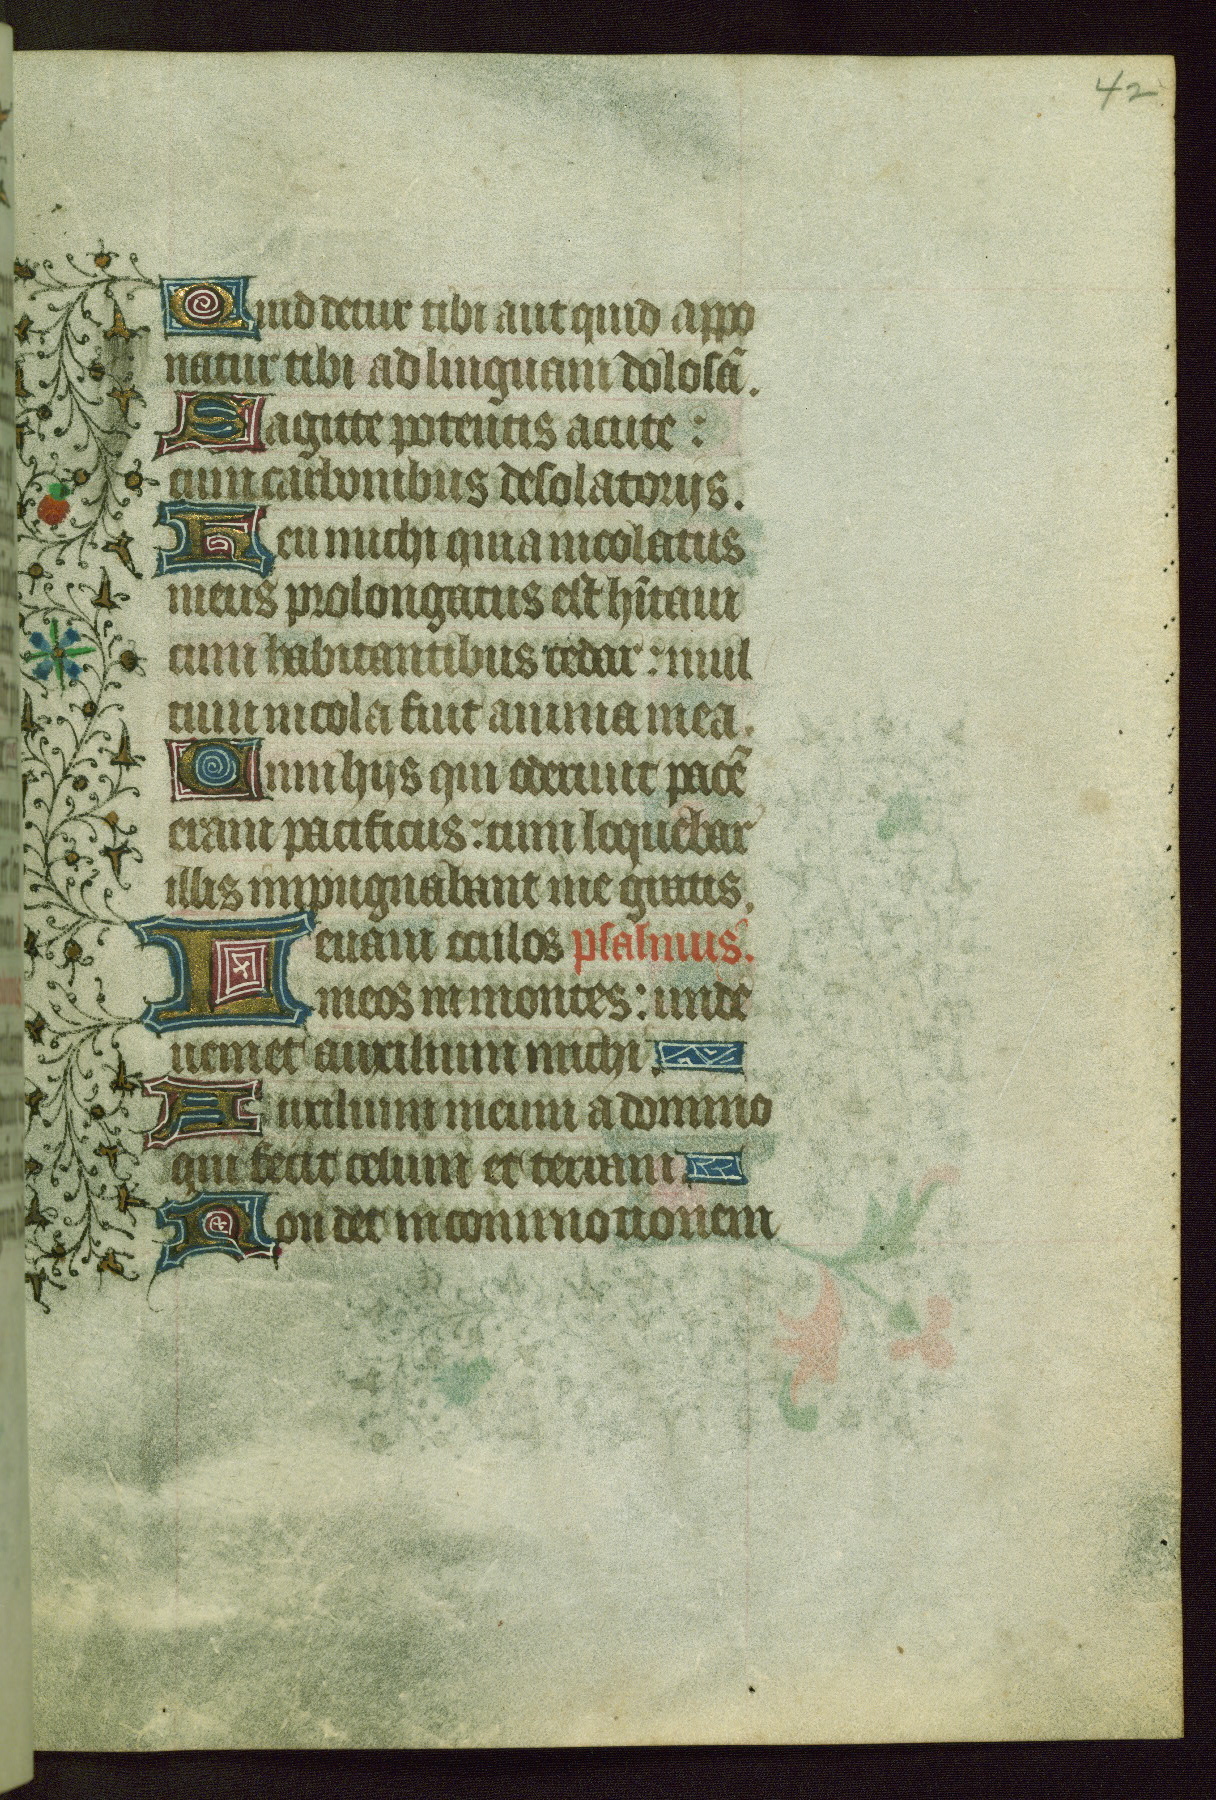 42
Quid detur tibi aut quid appo
natur tibi ad linguam dolosā.
Sagitte potentis acute :
cum carbonibus desolatorijs.
Heu michi quia incolatus
meus prolongatus est hītaui
cum habitantibus cedar : mul
tum incola fuit anima mea.
Cum hijs qui oderunt pacē
eram pacificus : cum loquebar
illis impugnabant me gratis.
Leuaui oculos psalmus.
meos in montes : unde
ueniet auxilium michi.
Auxilium meum a domino
qui fecit celum et terram.
Non det in commotionem